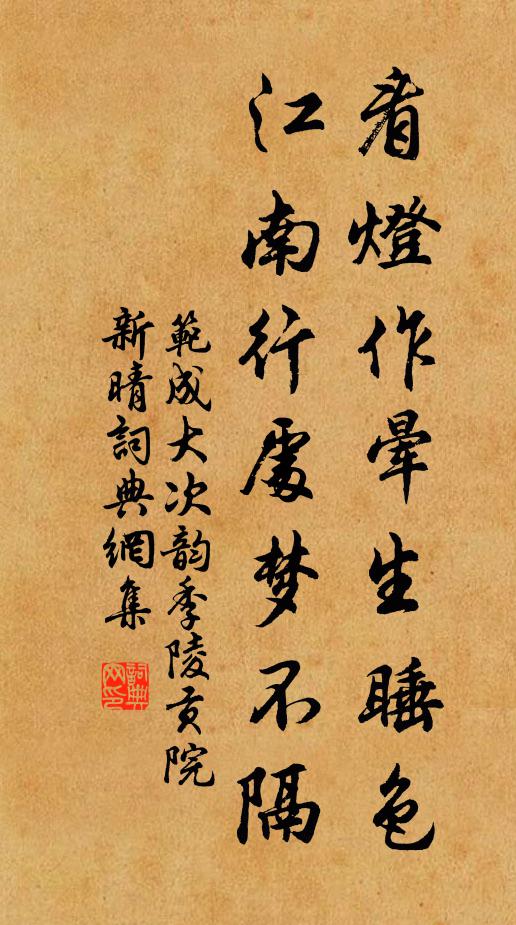 看燈作暈生睡色
江南行處梦不隔
範成大次韵季陵贡院
新晴詞典網集
詞典
网印